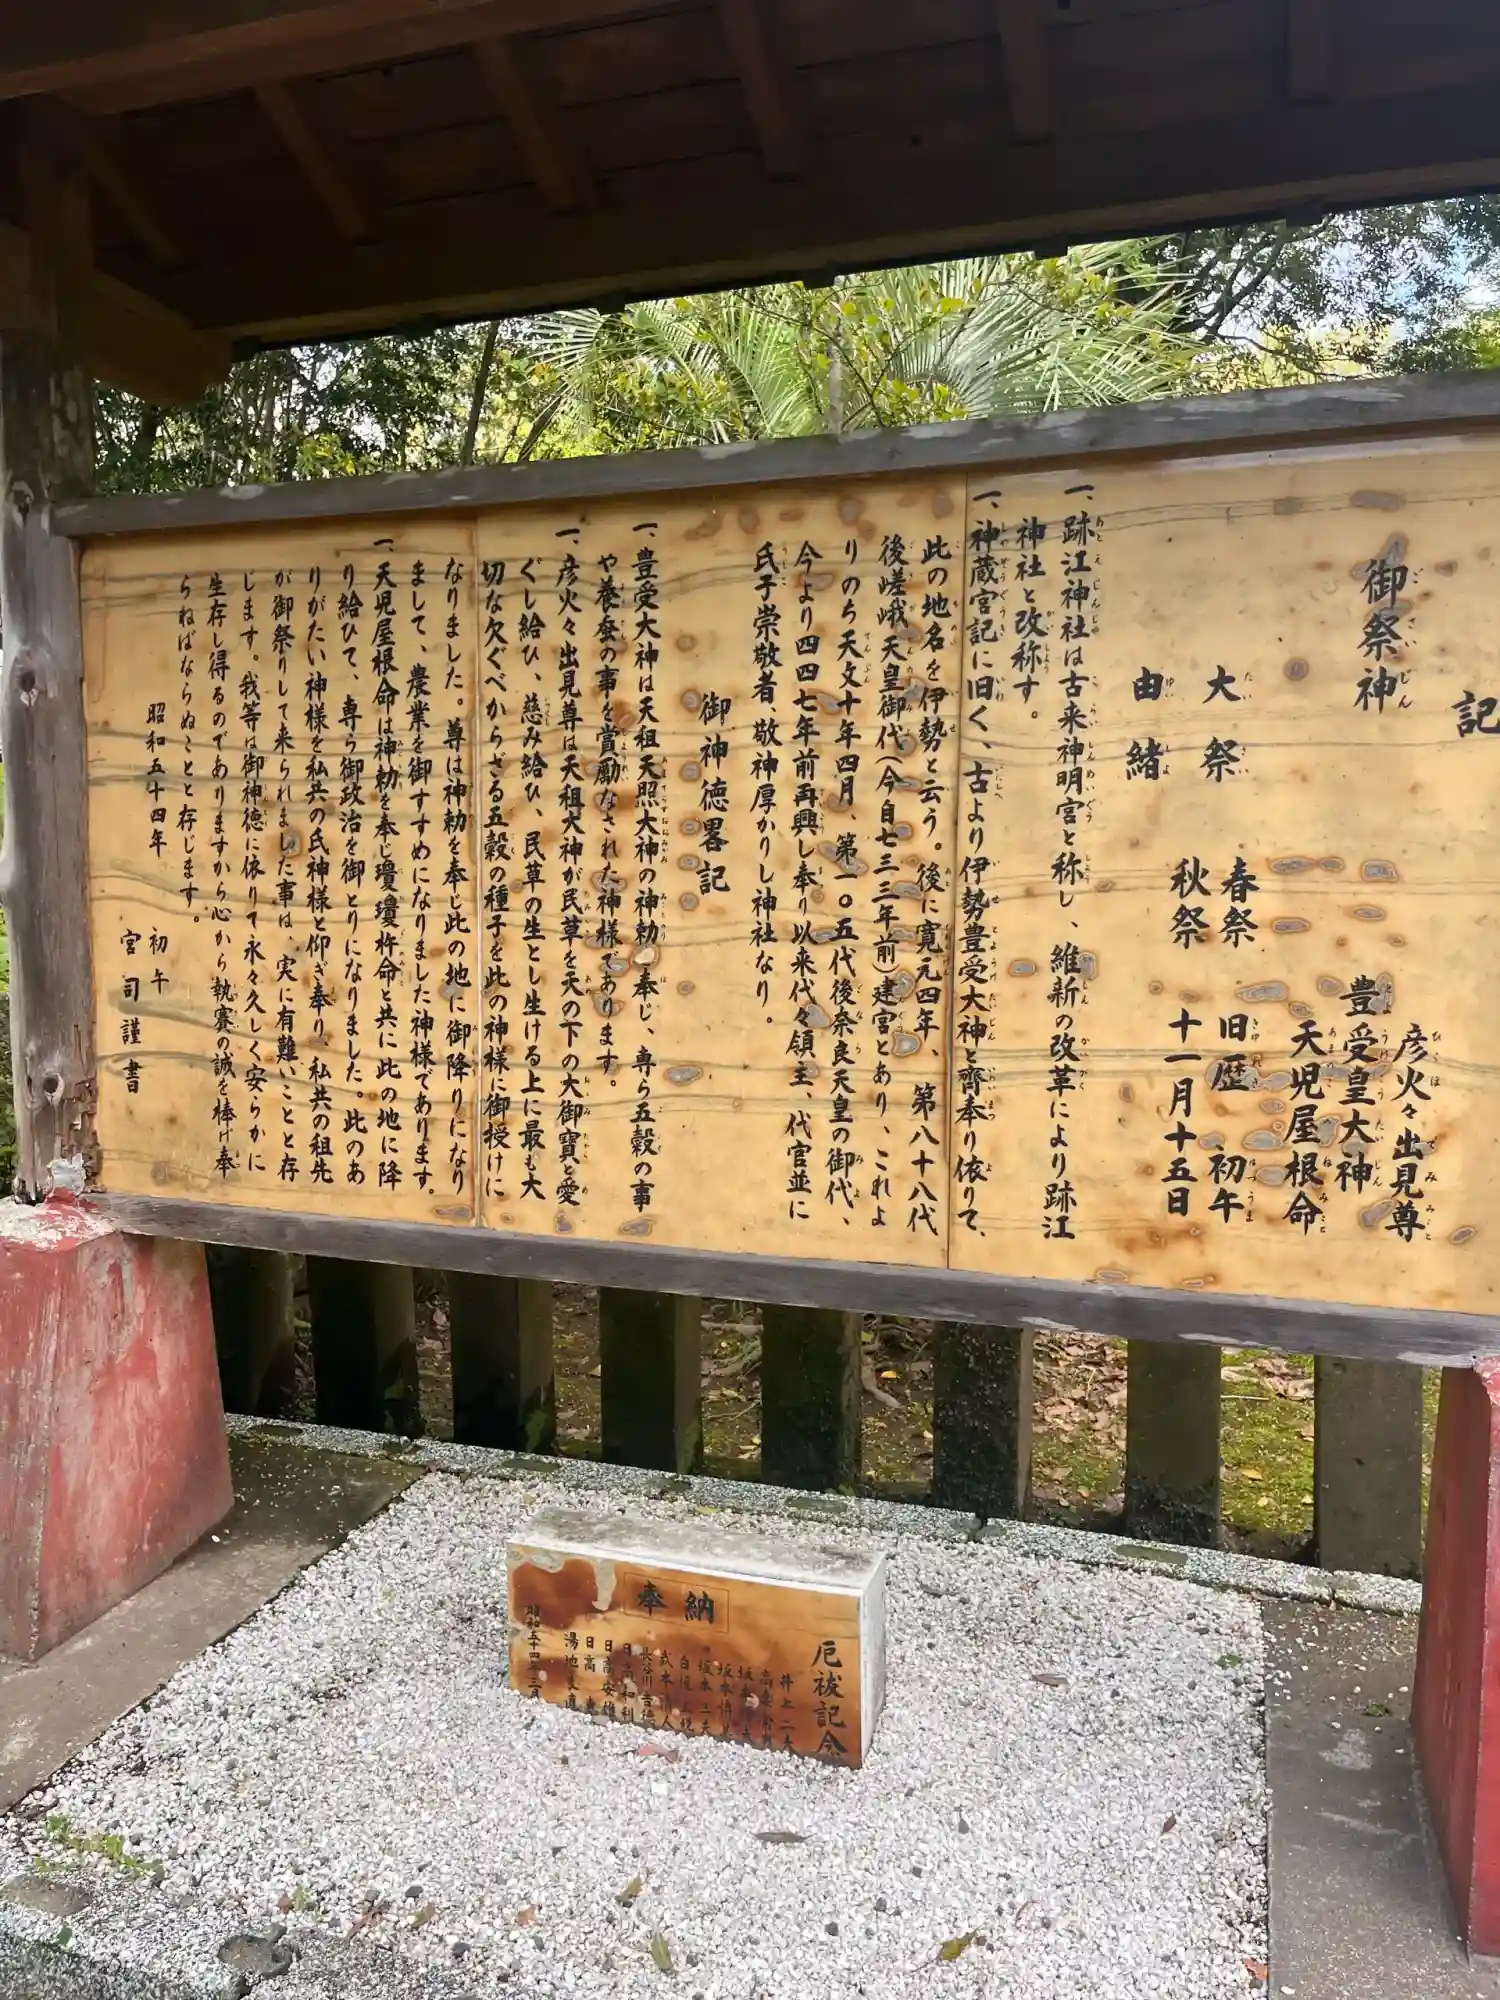 記
御祭神
彦火々出見尊
豊受皇大神
天児屋根命
大祭 春祭 旧歴 初午
秋祭 十一月十五日
由緒
一、跡江神社は古来神明宮と称し、維新の改革により跡江
神社と改称す。
一、神蔵宮記に旧く、古より伊勢豊受大神と齊奉り依りて、
此の地名を伊勢と云う。後に寛元四年、第八十八代
後嵯峨天皇御代(今自七三三年前)建宮とあり、これよ
りのち天文十年四月、第一〇五代後奈良天皇の御代、
今より四四七年前再興し奉り以来代々領主、代官並に
氏子崇敬者、敬神厚かりし神社なり。
御神徳畧記
一、豊受大神は天祖天照大神の神勅を奉じ、専ら五穀の事
や養蚕の事を賞励なされた神様であります。
一、彦火々出見尊は天祖大神が民草を天の下の大御寶と愛
ぐし給ひ、慈み給ひ、民草の生とし生ける上に最も大
切な欠ぐべからざる五穀の種子を此の神様に御授けに
なりました。尊は神勅を奉じ此の地に御降りになり
まして、農業を御すすめになりました神様であります。
一、天児屋根命は神勅を奉じ瓊瓊杵命と共に此の地に降
り給ひて、専ら御政治を御とりになりました。此のあ
りがたい神様を私共の氏神様と仰ぎ奉り、私共の祖先
が御祭りして来られました事は、実に有難いことと存
じます。我等は御神徳に依りて永々久しく安らかに
生存し得るのでありますから心から執賽の誠を棒げ奉
らねばならぬことと存じます。
昭和五十四年 初午
宮司謹書
奉納
厄祓記念
井上二夫
坂本二夫
武本清人
長谷川吉徳
日高和利
日高安雄
日高 東
湯地良直
昭和五十四年三月